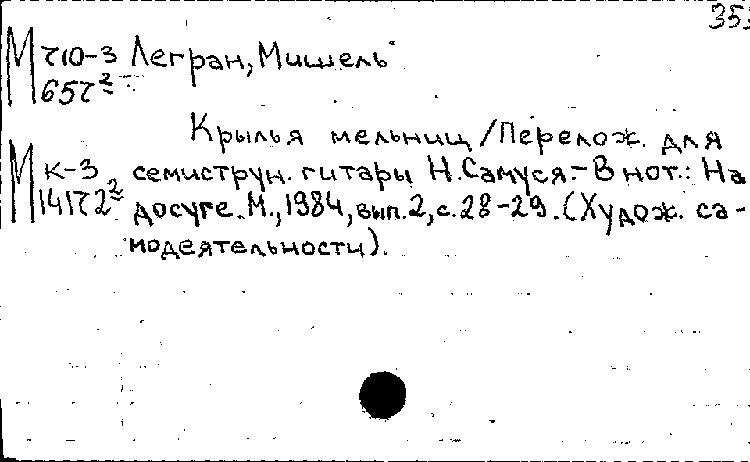 35
М τ10-3 Легран, Мишель
65τ²
Крылья мельниц / Перелож. для
М к-3 семиструн. гитары Н. Самуся. - В нот.: На
141τ2² досуге. М., 1984, вып. 2, с. 28-29. (Худож. са-
модеятельности).